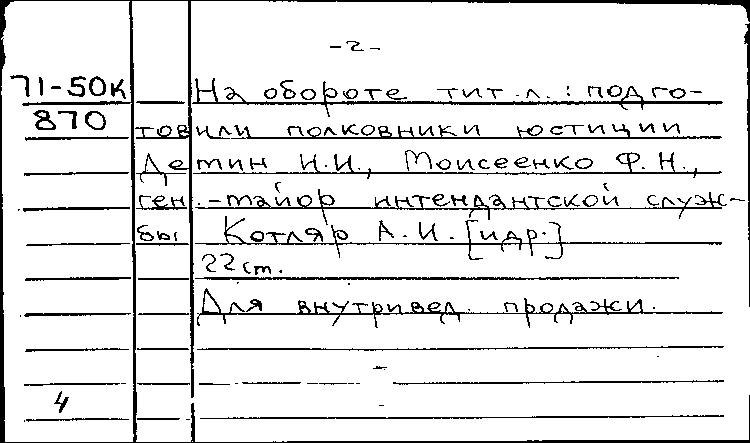 -2-
71-50к На обороте тит. л.: подго-
870 товили полковники юстиции
Демин Н.И., Моисеенко Ф.Н.,
ген.-майор интендантской служ-
бы Котляр А.И. [и др.]
22 ст.
Для внутривед. продажи.
4